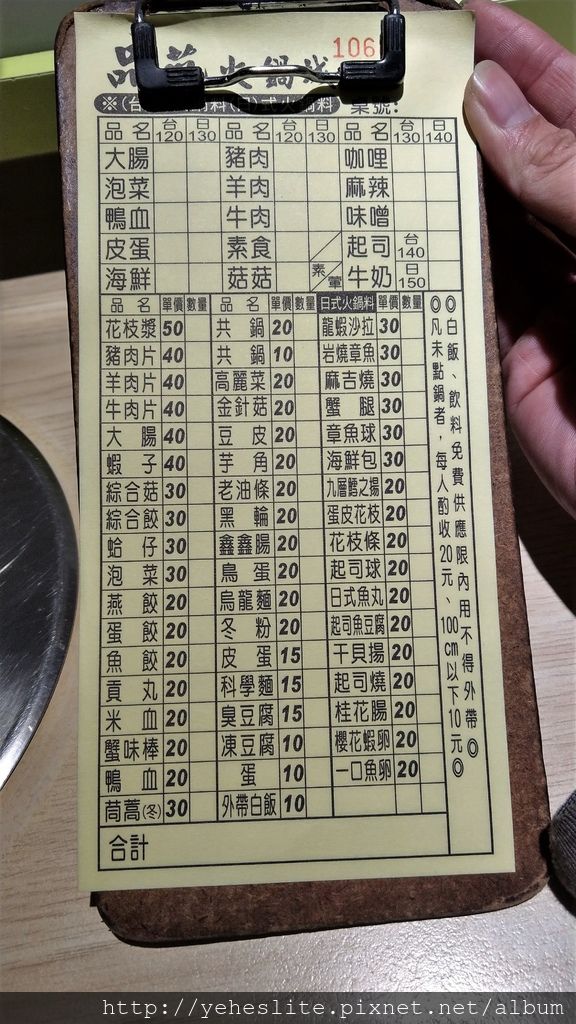 火鍋 106
品名 台120 日130 品名 台120 日130 品名 台130 日140
大腸 豬肉 咖哩
泡菜 羊肉 麻辣
鴨血 牛肉 味噌
皮蛋 素食 起司 台140
海鮮 菇菇 素 葷 牛奶 日150
品名 單價 數量 品名 單價 數量 日式火鍋料 單價 數量
花枝漿 50 共鍋 20 龍蝦沙拉 30
豬肉片 40 共鍋 10 岩燒章魚 30
羊肉片 40 高麗菜 20 麻吉燒 30
牛肉片 40 金針菇 20 蟹腿 30
大腸 40 豆皮 20 章魚球 30
蝦子 40 芋角 20 海鮮包 30
綜合菇 30 老油條 20 九層鱈之揚 20
綜合餃 30 黑輪 20 蛋皮花枝 20
蛤仔 30 鑫鑫腸 20 花枝條 20
泡菜 30 鳥蛋 20 起司球 20
燕餃 20 烏龍麵 20 日式魚丸 20
蛋餃 20 冬粉 20 起司魚豆腐 20
魚餃 20 皮蛋 15 干貝揚 20
貢丸 20 科學麵 15 起司燒 20
米血 20 臭豆腐 15 桂花腸 20
蟹味棒 20 凍豆腐 10 櫻花蝦卵 20
鴨血 20 蛋 10 一口魚卵 20
茼蒿(冬) 30 外帶白飯 10
合計
◎白飯、飲料免費供應限內用不得外帶◎
◎凡未點鍋者，每人酌收20元、100cm以下10元◎
http://yeheslite.pixnet.net/album